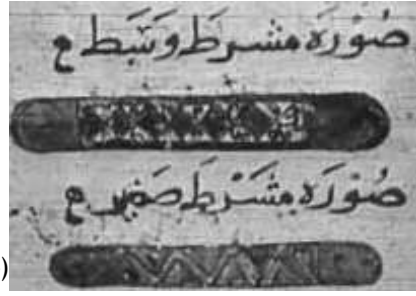 صُوْرَه مشرطَ وَسَط ع
صُوْرَه مِشَرْطَ صَغير ع
)